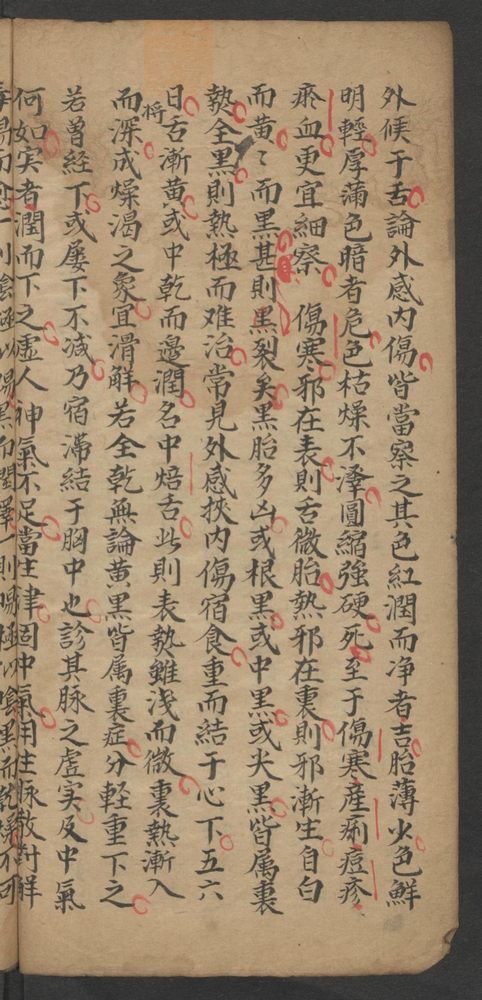 外候于舌論外感内傷皆當察之其色紅潤而净者吉胎薄少色鮮
明輕厚蒲色暗者危色枯燥不澤圓縮強硬死至于傷寒産痢痘疹
瘀血更宜細察 傷寒邪在表則舌微胎熱邪在裏則邪漸生自白
而黄〻而黑甚則黑裂矣黑胎多凶或根黑或中黑或尖黑皆属裏
熱全黑則熱極而难治常見外感挾内傷宿食重而結于心下五六
日舌漸黄或中乾而邊潤名中焙舌此則表熱雖浅而微裏熱漸入
将
而深成燥渴之象宜滑解若全乾無論黄黑皆属裏症分軽重下之
若曾經下或屡下不减乃宿滞結于胸中也診其脉之虚实及中氣
何如实者潤而下之虚人神氣不足當生津固中氣用生脉散對解